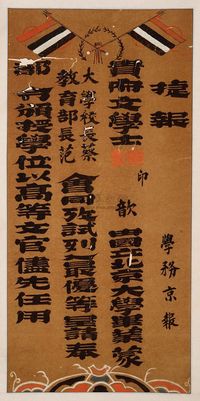 捷報
學務京報
貴府文學士印歆由國立北京大學畢業蒙
大學校長蔡
教育部長范
會同考試列入最優等呈請奉
部頒授學位以高等文官儘先任用